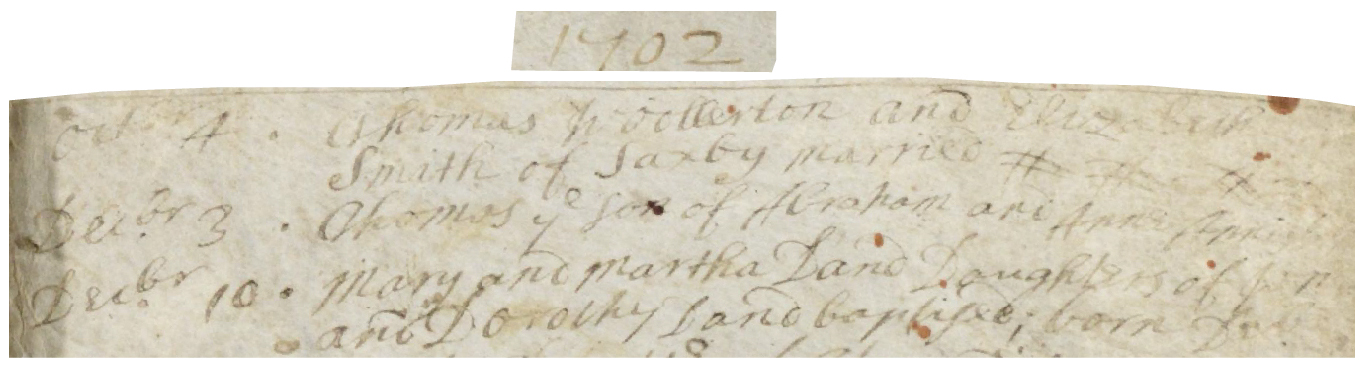 1702
Octbr 4. Thomas Woollerton and Elizabeth
Smith of Saxby married
Decbr 3. Thomas ye son of Abraham and Anne
Decbr 10. Mary and Martha Land Daughters of
and Dorothy Land baptised; born